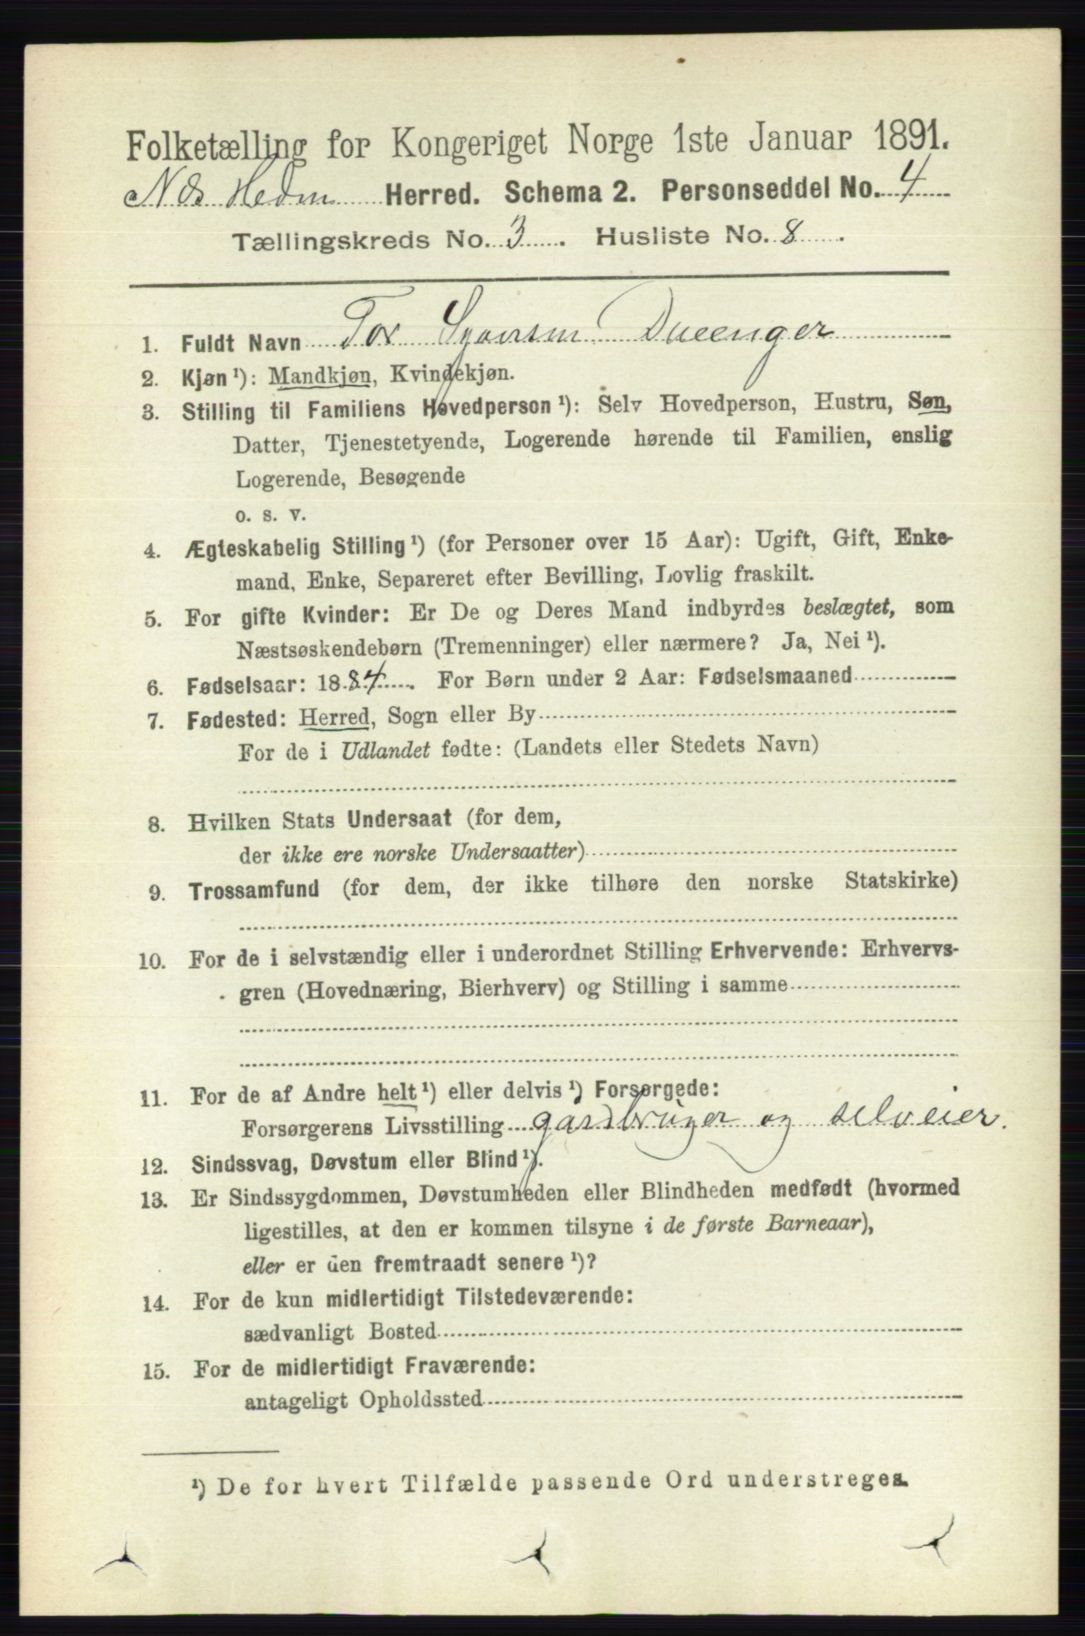 Folketælling for Kongeriget Norge 1ste Januar 1891.
Nds Hedm Herred. Schema 2. Personseddel No. 4
Tællingskreds No. 3. Husliste No. 8.
1. Fuldt Navn Tor
2. Kjøn ¹): Mandkjøn, Kvindekjøn.
3. Stilling til Familiens Hovedperson ¹): Selv Hovedperson, Hustru, Søn,
Datter, Tjenestetyende, Logerende hørende til Familien, enslig
Logerende, Besøgende
o. s. v.
4. Ægteskabelig Stilling ¹) (for Personer over 15 Aar): Ugift, Gift, Enke-
mand, Enke, Separeret efter Bevilling, Lovlig fraskilt.
5. For gifte Kvinder: Er De og Deres Mand indbyrdes beslægtet, som
Næstsøskendebørn (Tremenninger) eller nærmere? Ja, Nei ¹).
6. Fødselsaar: 1884. For Børn under 2 Aar: Fødselsmaaned
7. Fødested: Herred, Sogn eller By
For de i Udlandet fødte: (Landets eller Stedets Navn)
8. Hvilken Stats Undersaat (for dem,
der ikke ere norske Undersaatter)
9. Trossamfund (for dem, der ikke tilhøre den norske Statskirke)
10. For de i selvstændig eller i underordnet Stilling Erhvervende: Erhvervs-
gren (Hovednæring, Bierhverv) og Stilling i samme
11. For de af Andre helt ¹) eller delvis ¹) Forsørgede:
Forsørgerens Livsstilling gardbruger og selveier.
12. Sindssvag, Døvstum eller Blind ¹).
13. Er Sindssygdommen, Døvstumheden eller Blindheden medfødt (hvormed
ligestilles, at den er kommen tilsyne i de første Barneaar),
eller er den fremtraadt senere ¹)?
14. For de kun midlertidigt Tilstedeværende:
sædvanligt Bosted
15. For de midlertidigt Fraværende:
antageligt Opholdssted
¹) De for hvert Tilfælde passende Ord understreges.